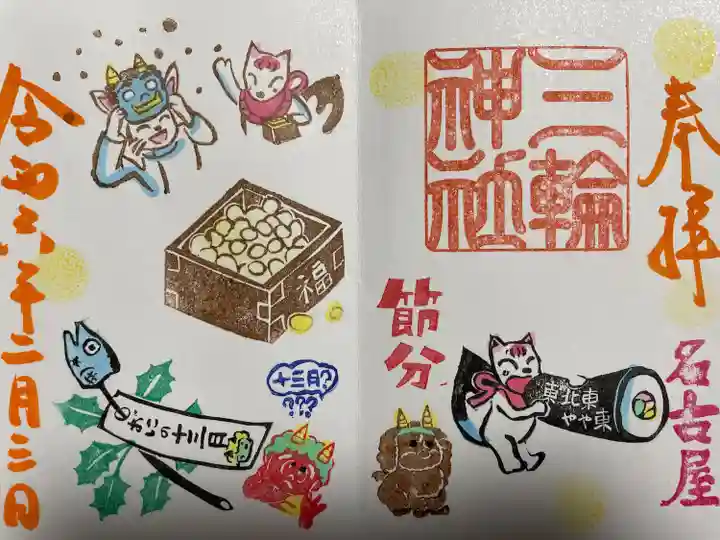 奉拝
名古屋
三輪
神社
節分
東北東
やや東
福
十三日?
???
おにの十三日
令和六年二月三日